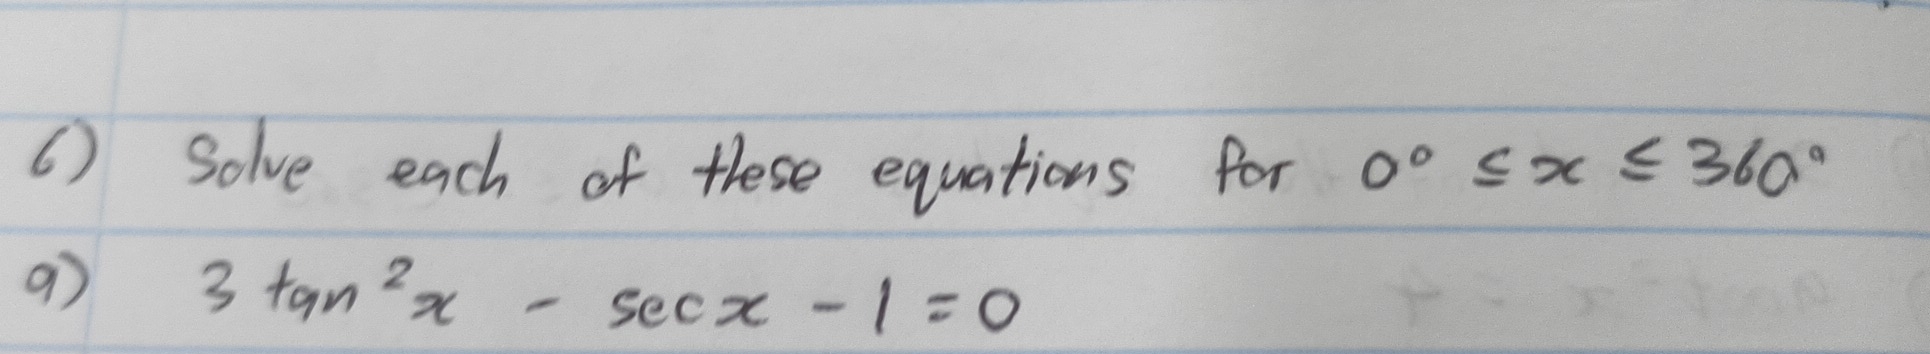 6) Solve each of these equations for 0° ≤ x ≤ 360°
a) 3 tan²x - sec x - 1 = 0